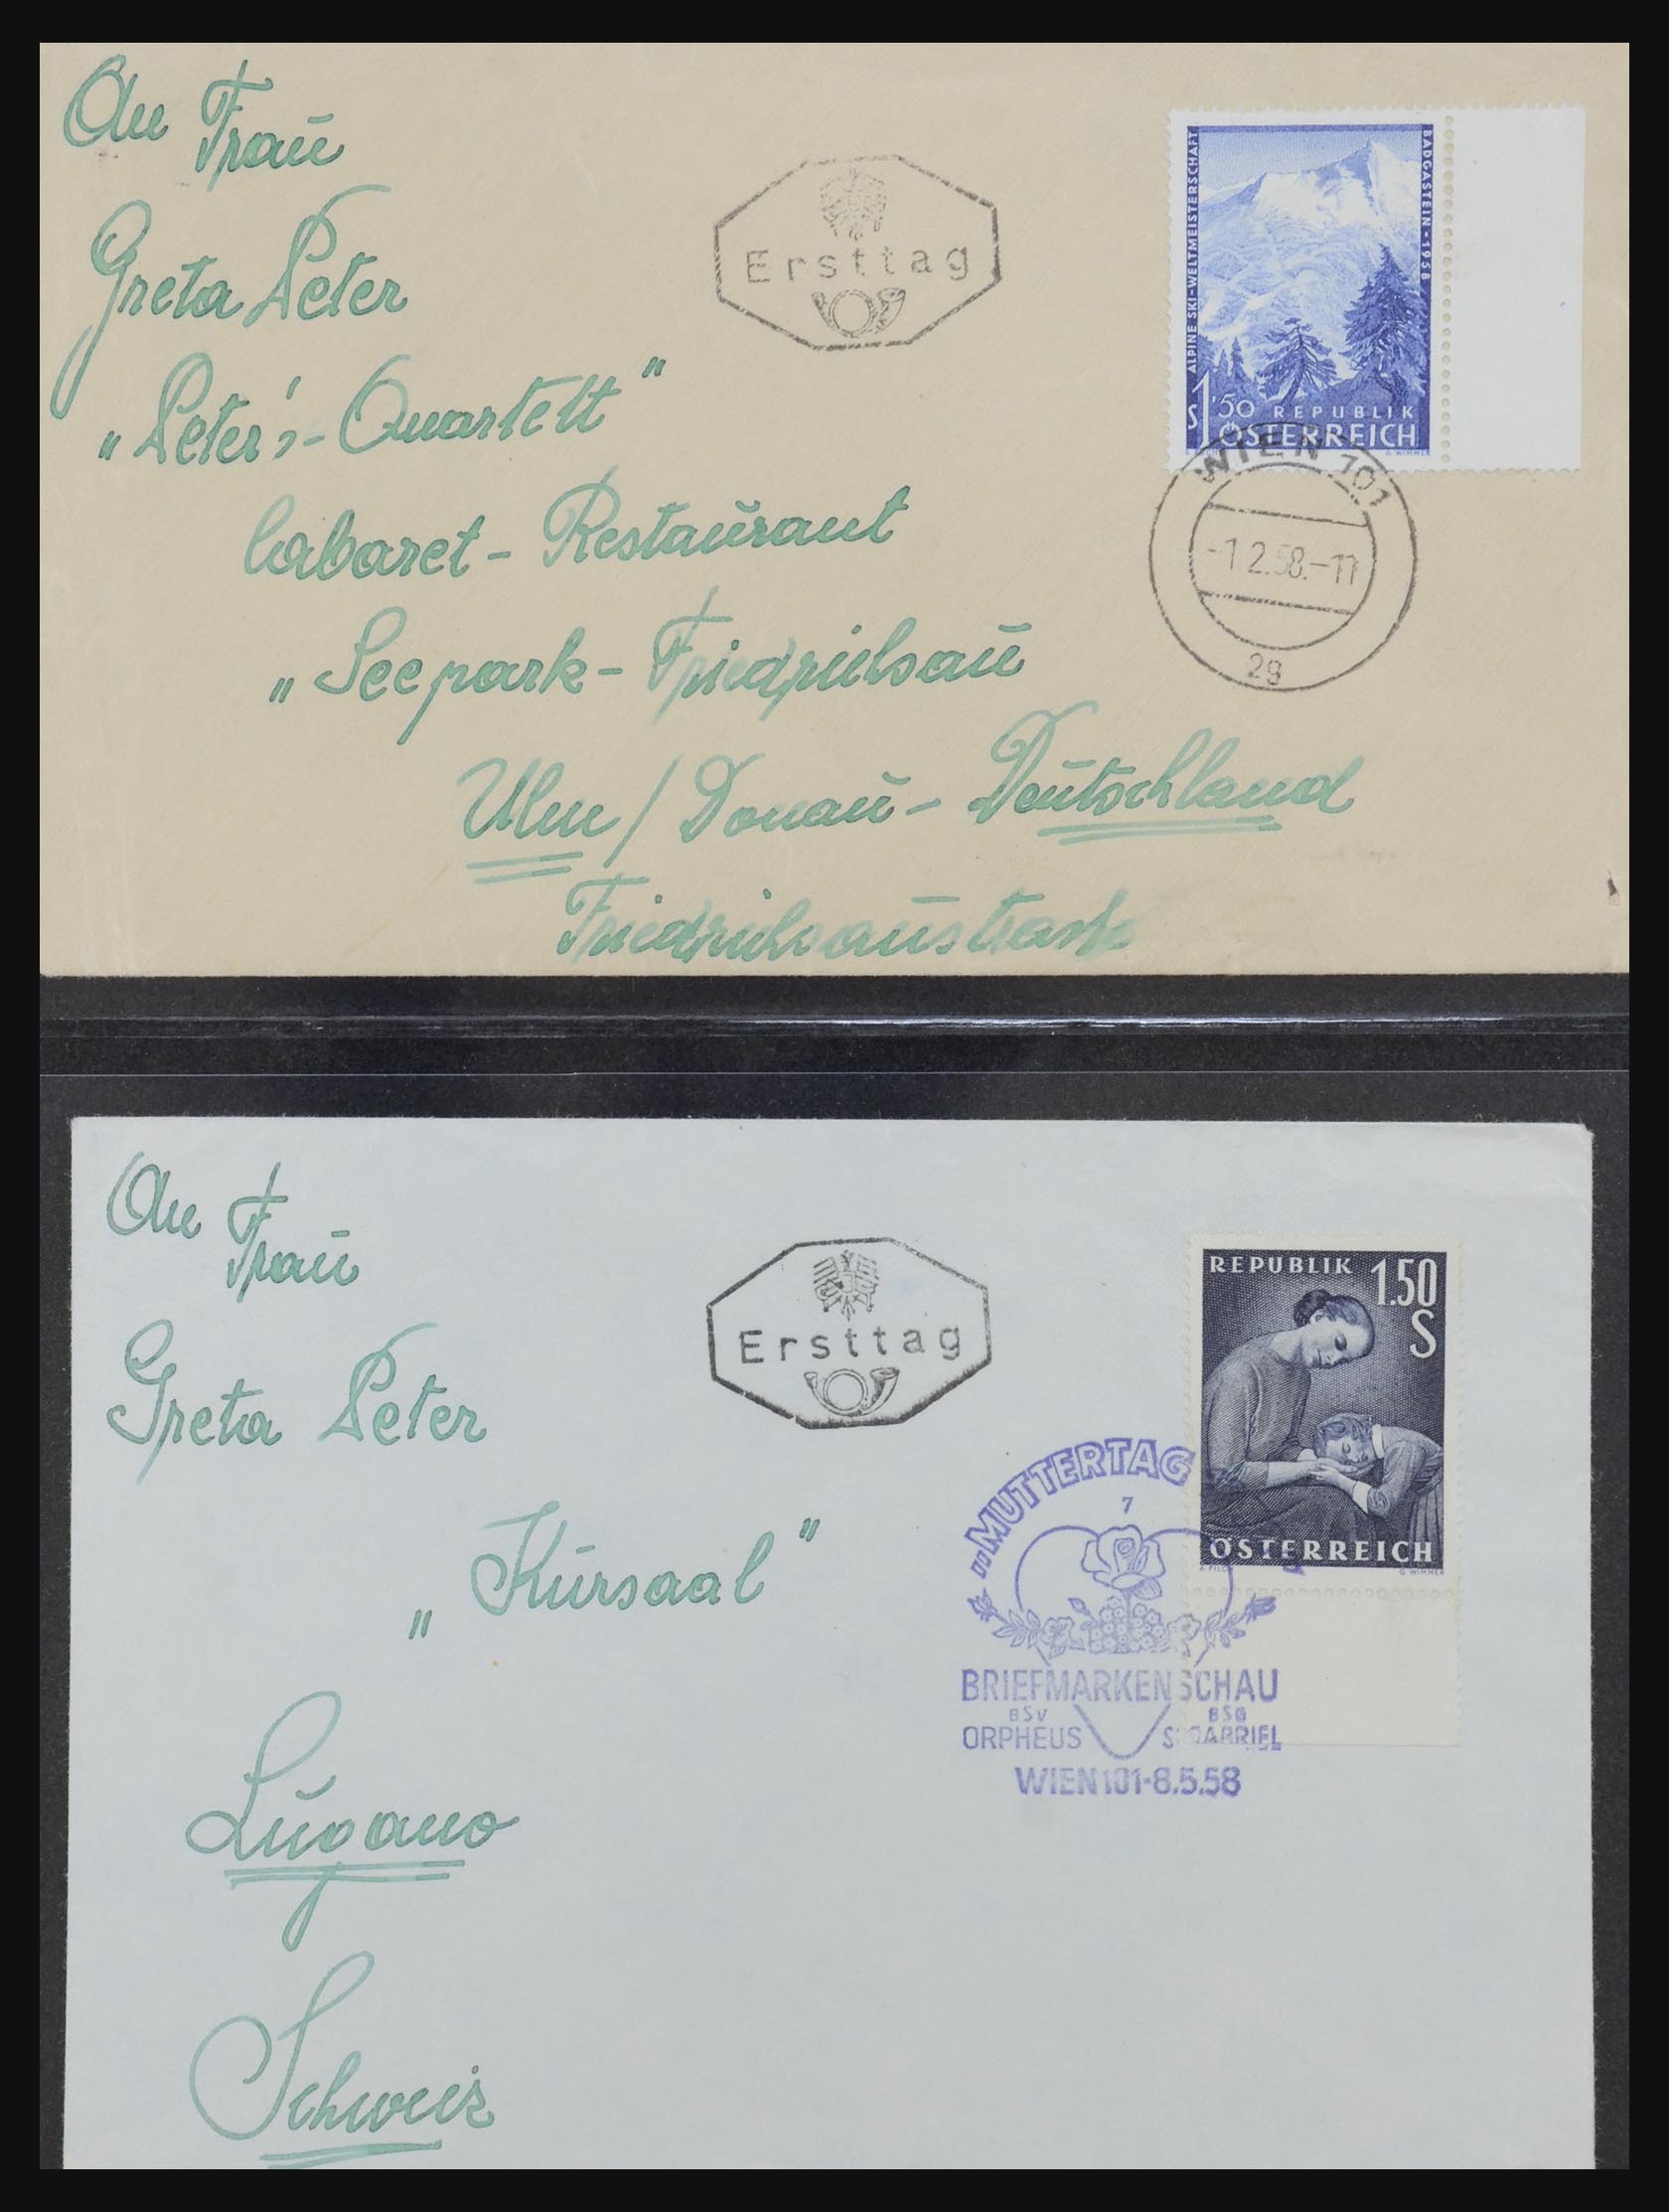 An Frau
Greta Peter
„Peter's-Quartett"
Cabaret-Restaurant
„Seepark-Friedrichsau
Ulm/Donau-Deutschland
Friedrichsaustraße
Ersttag
ALPINE SKI-WELTMEISTERSCHAFT
BADGASTEIN-1958
S1'50 REPUBLIK
ÖSTERREICH
G. WIMMER
WIEN 101
-1.2.58.-11
2g
An Frau
Greta Peter
„Kursaal"
Lugano
Schweiz
Ersttag
REPUBLIK 1.50
S
ÖSTERREICH
A. PILCH
G. WIMMER
„MUTTERTAG
7
BRIEFMARKENSCHAU
BSV BSG
ORPHEUS ST. GABRIEL
WIEN 101-8.5.58